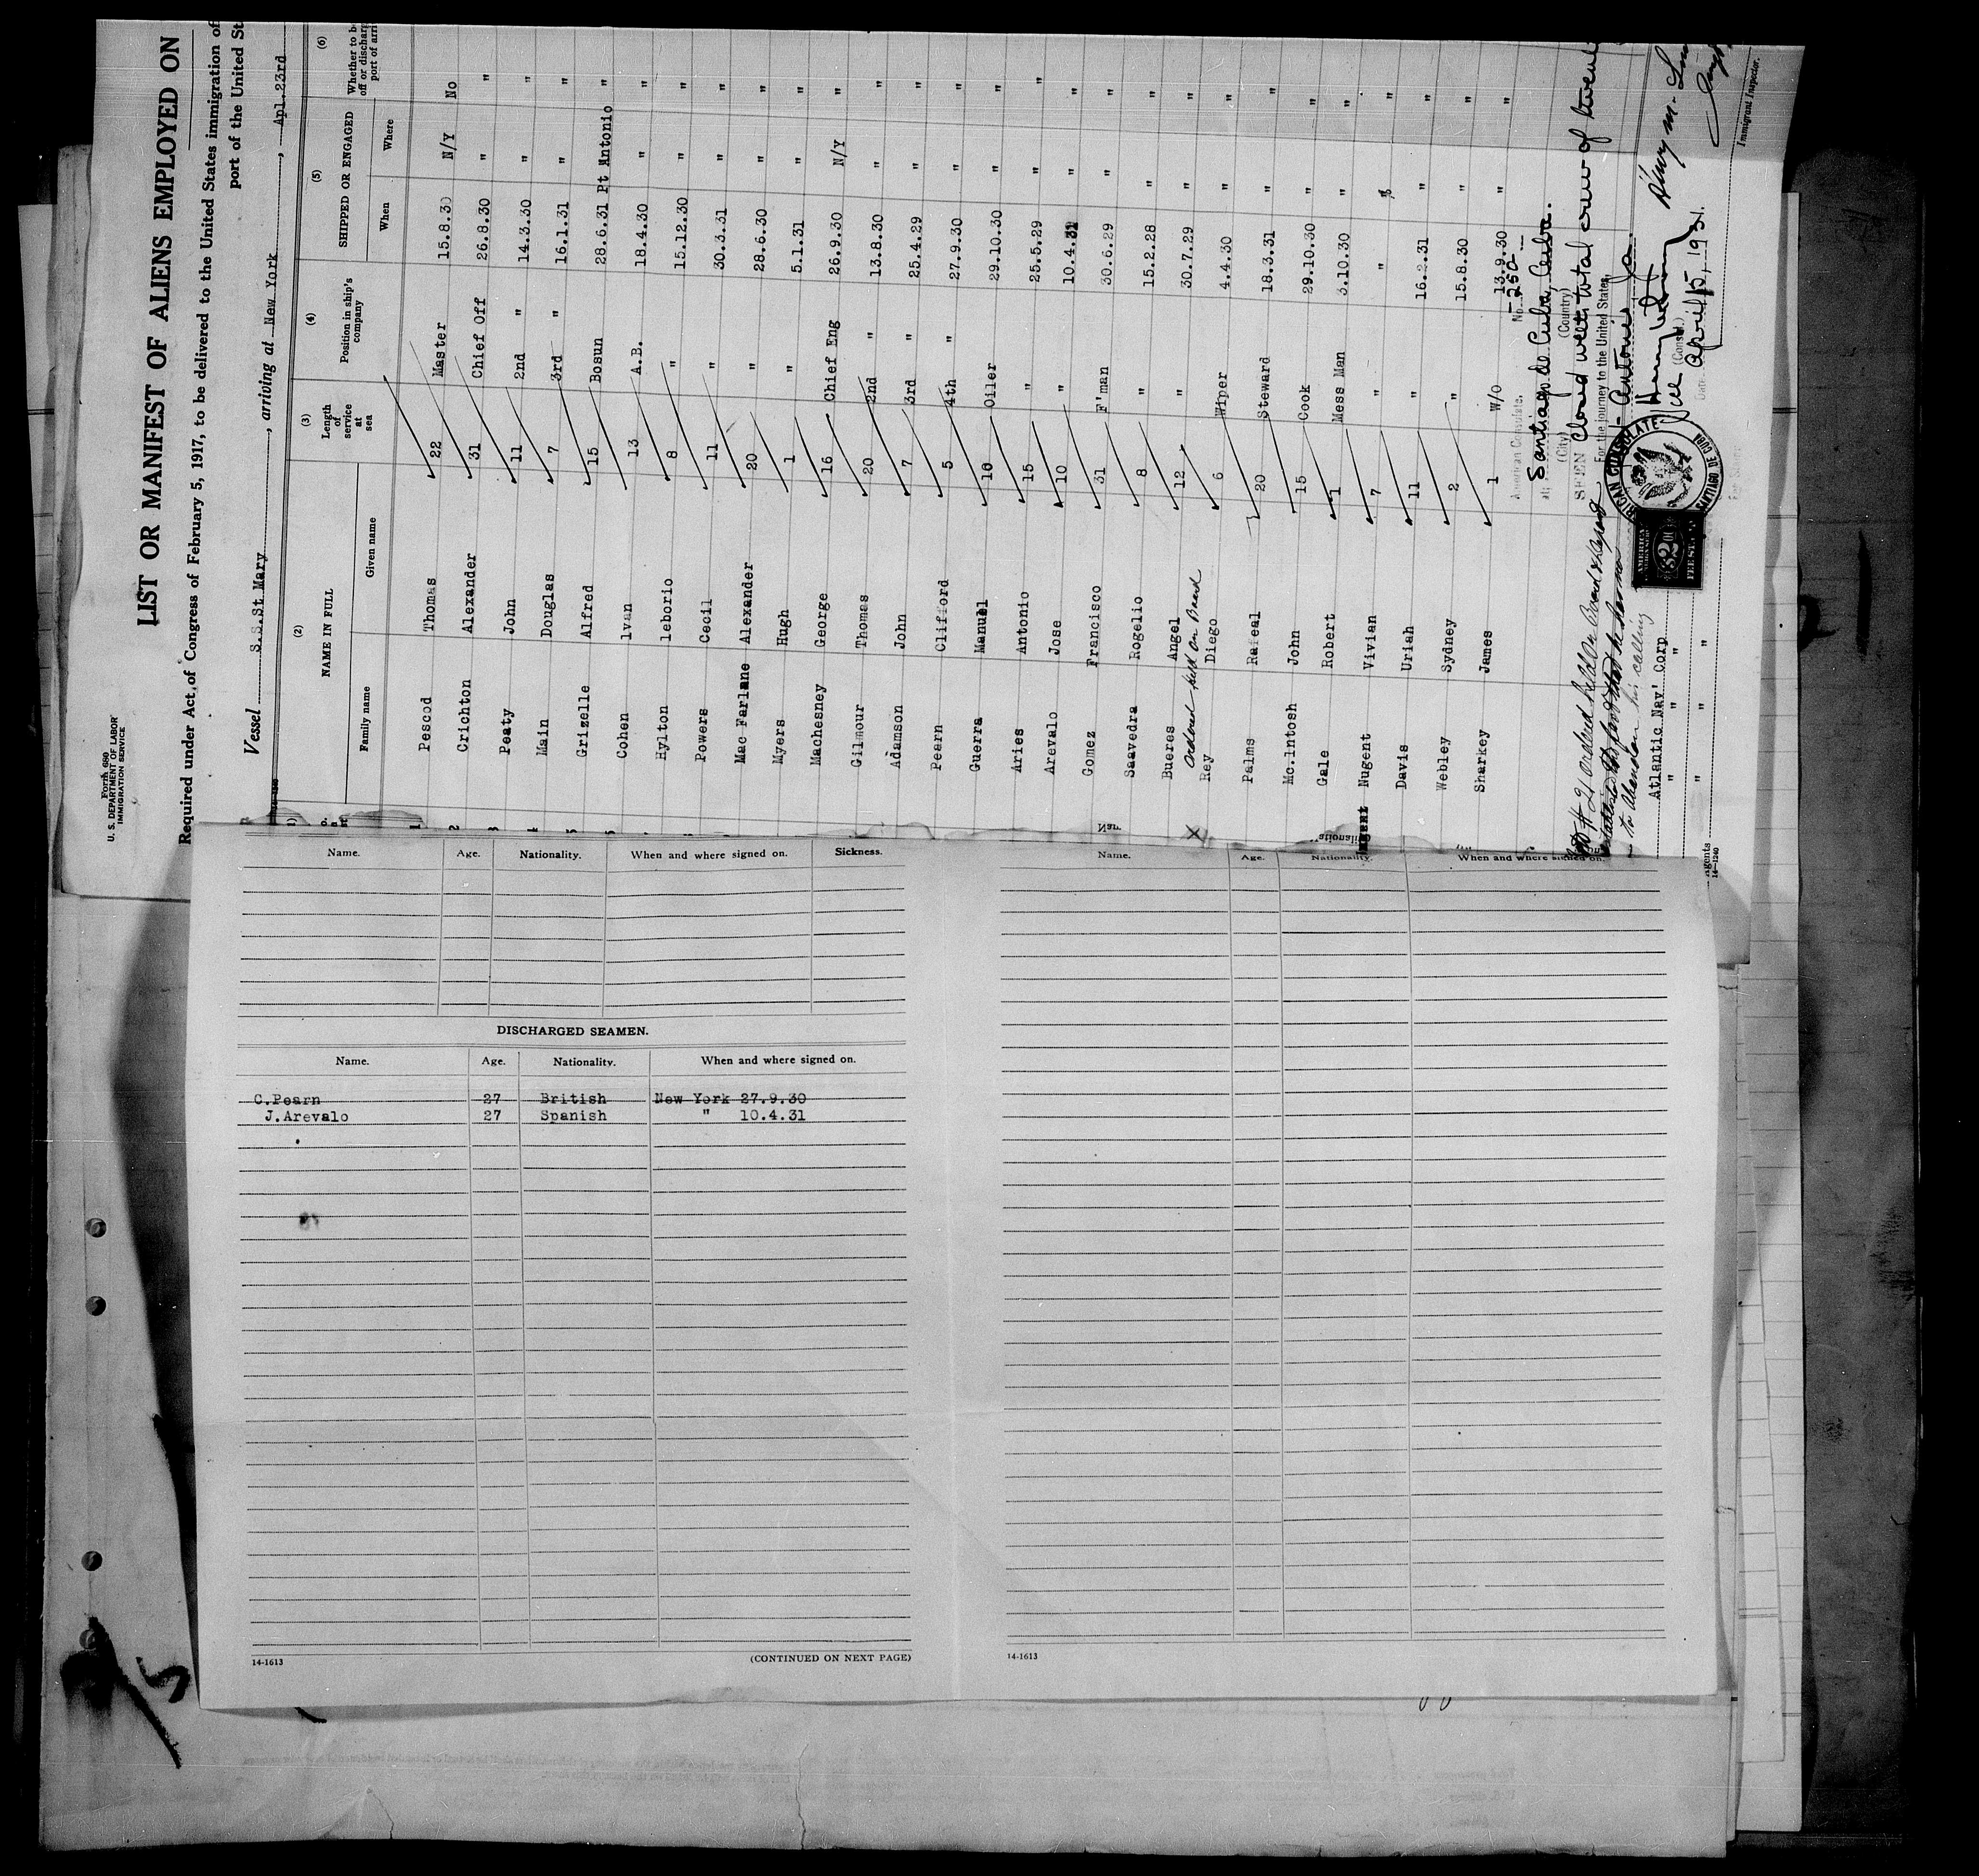 Form 680
U. S. DEPARTMENT OF LABOR
IMMIGRATION SERVICE
LIST OR MANIFEST OF ALIENS EMPLOYED ON
Required under Act of Congress of February 5, 1917, to be delivered to the United States immigration of
port of the United St
Vessel S.S.St Mary, arriving at New York, Apl.23rd
(2) (3) (4) (5) (6)
NAME IN FULL Length of service at sea Position in ship's company SHIPPED OR ENGAGED Whether to be off or discharg port of arri
Family name Given name When Where
Pescod Thomas 22 Master 15.8.30 N/Y No
Crichton Alexander 31 Chief Off 26.8.30 " "
Peaty John 11 2nd " 14.3.30 " "
Main Douglas 7 3rd " 16.1.31 " "
Grizelle Alfred 15 Bosun 28.6.31 Pt Antonio "
Cohen lvan 13 A.B. 18.4.30 " "
Hylton leborio 8 " 15.12.30 " "
Powers Cecil 11 " 30.3.31 " "
Mac Farlane Alexander 20 " 28.6.30 " "
Myers Hugh 1 " 5.1.31 " "
Machesney George 16 Chief Eng 26.9.30 N/Y "
Gilmour Thomas 20 2nd " 13.8.30 " "
Adamson John 7 3rd " 25.4.29 " "
Pearn Clifford 5 4th " 27.9.30 " "
Guerra Manuel 10 Oiler 29.10.30 " "
Aries Antonio 15 " 25.5.29 " "
Arevalo Jose 10 " 10.4.31 " "
Gomez Francisco 31 F'man 30.6.29 " "
Saavedra Rogelio 8 " 15.2.28 " "
Bueres Angel 12 " 30.7.29 " "
ordered held on Board
Rey Diego 6 Wiper 4.4.30 " "
Palms Rafeal 20 Steward 18.3.31 " "
Mc.lntosh John 15 Cook 29.10.30 " "
Gale Robert 1 Mess Man 3.10.30 " "
Nugent Vivian 7 " " " "
Davis Uriah 11 " 16.2.31 " "
Webley Sydney 2 " 15.8.30 " "
Sharkey James 1 W/O 13.9.30 " "
American Consulate, No. -250-
at Santiago de Cuba, Cuba.
(City) (Country)
SEEN closed with total crew of
For the journey to the United States,
Antonio Ja.
(Consul)
Date April 15, 1931.
# 21 ordered held on Board
to Abandon his calling
AMERICAN CONSULATE
SANTIAGO DE CUBA
AMERICAN
FEE STAMP
Atlantic Nav' Corp
" " "
" " "
Agents
14-1240
Immigrant Inspector.
Name. Age. Nationality. When and where signed on. Sickness.
DISCHARGED SEAMEN.
Name. Age. Nationality. When and where signed on.
C.Pearn 27 British New York 27.9.30
J.Arevalo 27 Spanish " 10.4.31
14-1613 (CONTINUED ON NEXT PAGE)
Name. Age. Nationality. When and where signed on.
14-1613